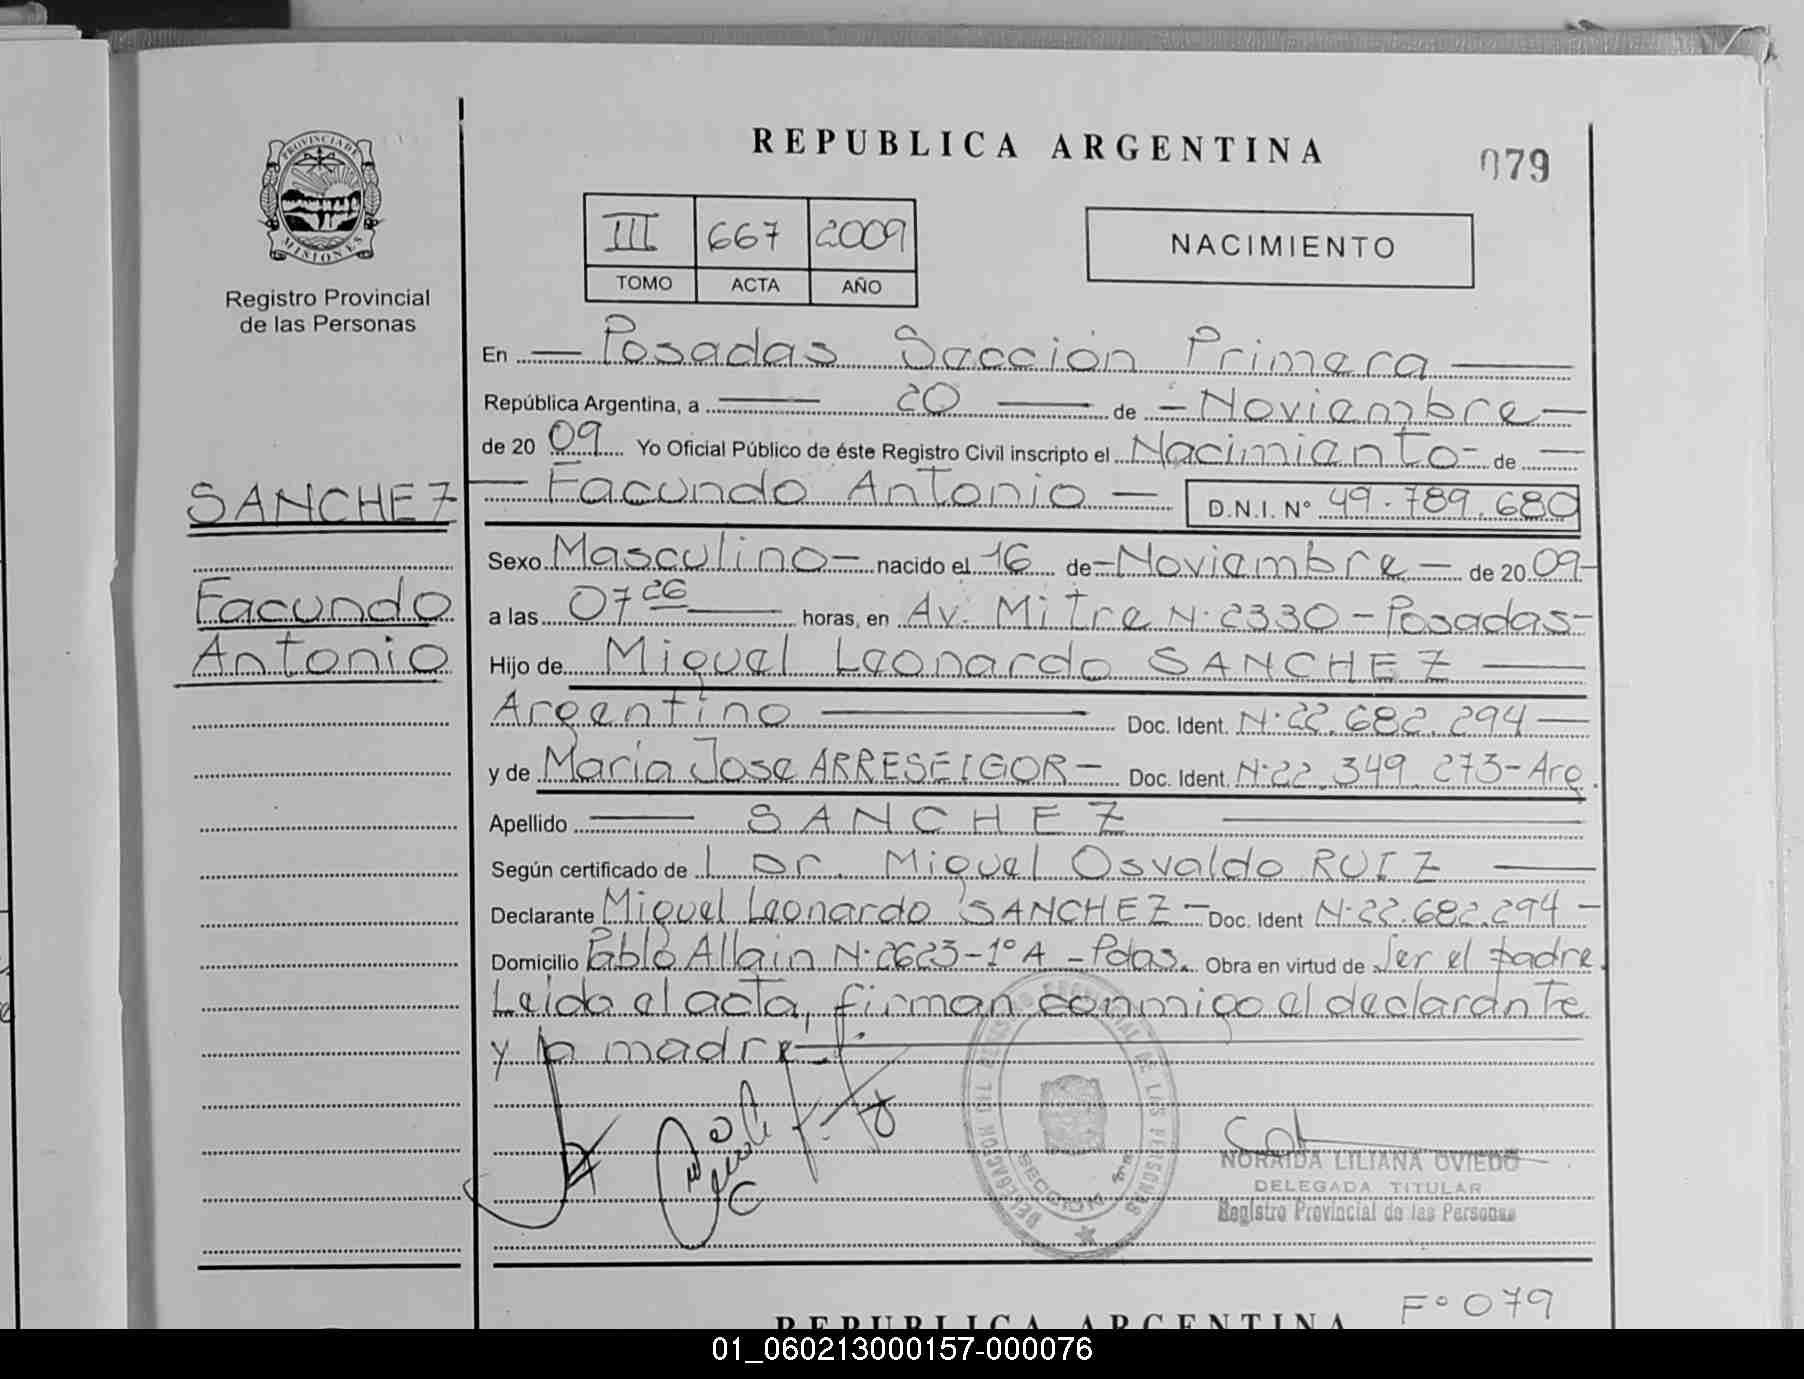 REPUBLICA ARGENTINA
079
PROVINCIA DE
MISIONES
Registro Provincial
de las Personas
III 667 2009
TOMO ACTA AÑO
NACIMIENTO
En Posadas Sección Primera
República Argentina, a 20 de Noviembre
de 20 09 Yo Oficial Público de éste Registro Civil inscripto el Nacimiento de
SANCHEZ
Facundo Antonio D.N.I. N° 49.789.680
Sexo Masculino nacido el 16 de Noviembre de 20 09
Facundo
a las 07 26 horas, en Av. Mitre N° 2330 - Posadas
Antonio
Hijo de Miguel Leonardo SANCHEZ
Argentino Doc. Ident. N° 22.682.294
y de María Jose ARRESEIGOR Doc. Ident. N° 22.349.273 - Arg.
Apellido SANCHEZ
Según certificado de l Dr. Miguel Osvaldo RUIZ
Declarante Miguel Leonardo SANCHEZ Doc. Ident N° 22.682.294
Domicilio Pablo Allain N° 2623 - 1° A - Pdas. Obra en virtud de Ser el padre.
Leída el acta, firman conmigo el declarante
y la madre
DELEGACION DEL REGISTRO PROVINCIAL DE LAS PERSONAS
SECCION 1ra
NORAIDA LILIANA OVIEDO
DELEGADA TITULAR
Registro Provincial de las Personas
F° 079
REPUBLICA ARGENTINA
01_060213000157-000076